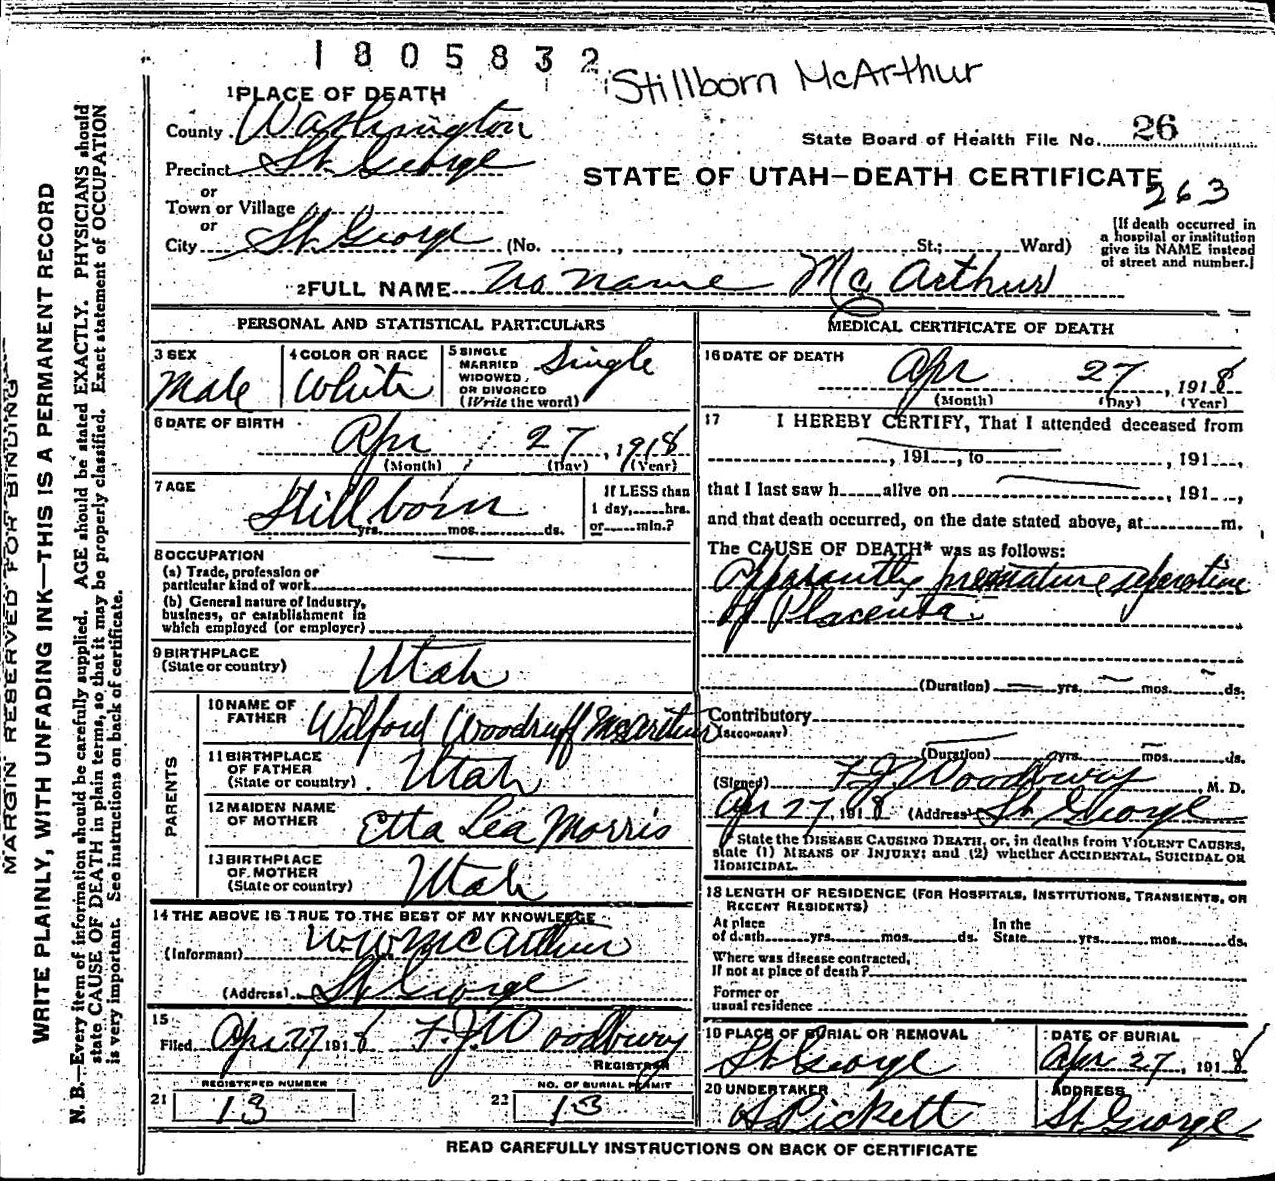 1805832
Stillborn McArthur
1 PLACE OF DEATH
County Washington
State Board of Health File No. 26
Precinct St. George
STATE OF UTAH—DEATH CERTIFICATE
263
or
Town or Village
or
City St. George (No. , St.; Ward)
[If death occurred in
a hospital or institution
give its NAME instead
of street and number.]
2 FULL NAME No name McArthur
PERSONAL AND STATISTICAL PARTICULARS
3 SEX
Male
4 COLOR OR RACE
White
5 SINGLE
MARRIED
WIDOWED,
OR DIVORCED
(Write the word)
Single
6 DATE OF BIRTH
Apr 27, 1918
(Month) (Day) (Year)
7 AGE
Stillborn
yrs. mos. ds.
If LESS than
1 day, hrs.
or min.?
8 OCCUPATION
(a) Trade, profession or
particular kind of work
(b) General nature of Industry,
business, or establishment in
which employed (or employer)
9 BIRTHPLACE
(State or country)
Utah
PARENTS
10 NAME OF
FATHER
Wilford Woodruff McArthur
11 BIRTHPLACE
OF FATHER
(State or country)
Utah
12 MAIDEN NAME
OF MOTHER
Etta Lea Morris
13 BIRTHPLACE
OF MOTHER
(State or country)
Utah
14 THE ABOVE IS TRUE TO THE BEST OF MY KNOWLEDGE
(Informant) W W McArthur
(Address) St George
15
Filed Apr 27 1918 F. J. Woodbury
REGISTRAR
REGISTERED NUMBER
21 13
NO. OF BURIAL PERMIT
22 13
MEDICAL CERTIFICATE OF DEATH
16 DATE OF DEATH
Apr 27, 1918
(Month) (Day) (Year)
17 I HEREBY CERTIFY, That I attended deceased from
, 191 , to , 191 ,
that I last saw h alive on , 191 ,
and that death occurred, on the date stated above, at m.
The CAUSE OF DEATH* was as follows:
Apparantly premature separation
of Placenta
(Duration) yrs. mos. ds.
Contributory
(SECONDARY)
(Duration) yrs. mos. ds.
(Signed) F. J. Woodbury, M. D.
Apr 27, 1918 (Address) St. George
State the DISEASE CAUSING DEATH, or, in deaths from VIOLENT CAUSES,
state (1) MEANS OF INJURY; and (2) whether ACCIDENTAL, SUICIDAL OR
HOMICIDAL.
18 LENGTH OF RESIDENCE (FOR HOSPITALS, INSTITUTIONS, TRANSIENTS, OR
RECENT RESIDENTS)
At place
of death yrs. mos. ds.
In the
State yrs. mos. ds.
Where was disease contracted,
If not at place of death?
Former or
usual residence
19 PLACE OF BURIAL OR REMOVAL
St George
DATE OF BURIAL
Apr 27, 1918
20 UNDERTAKER
Pickett
ADDRESS
St George
READ CAREFULLY INSTRUCTIONS ON BACK OF CERTIFICATE
MARGIN RESERVED FOR BINDING
WRITE PLAINLY, WITH UNFADING INK—THIS IS A PERMANENT RECORD
N. B.—Every item of information should be carefully supplied. AGE should be stated EXACTLY. PHYSICIANS should
state CAUSE OF DEATH in plain terms, so that it may be properly classified. Exact statement of OCCUPATION
is very important. See instructions on back of certificate.